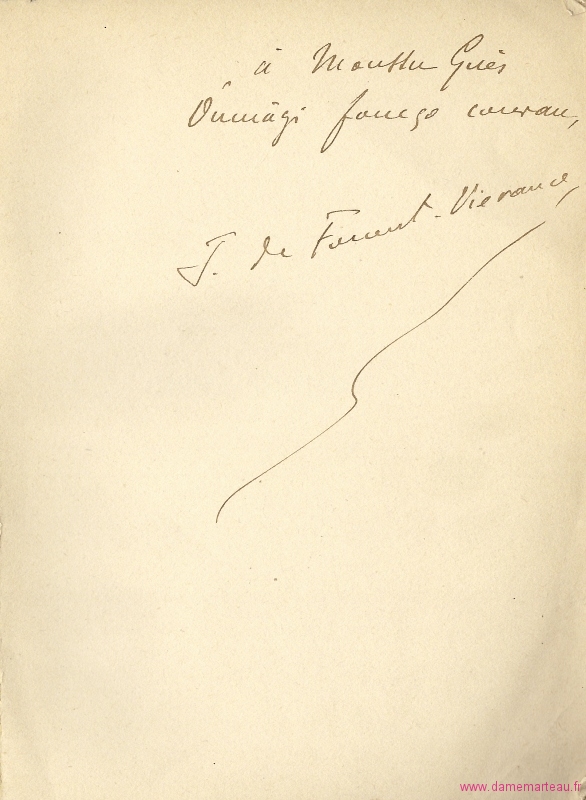 à Moussu Griès
Óumági fouoço couran,
J. de Fourent-Vierance,
www.damemarteau.fr